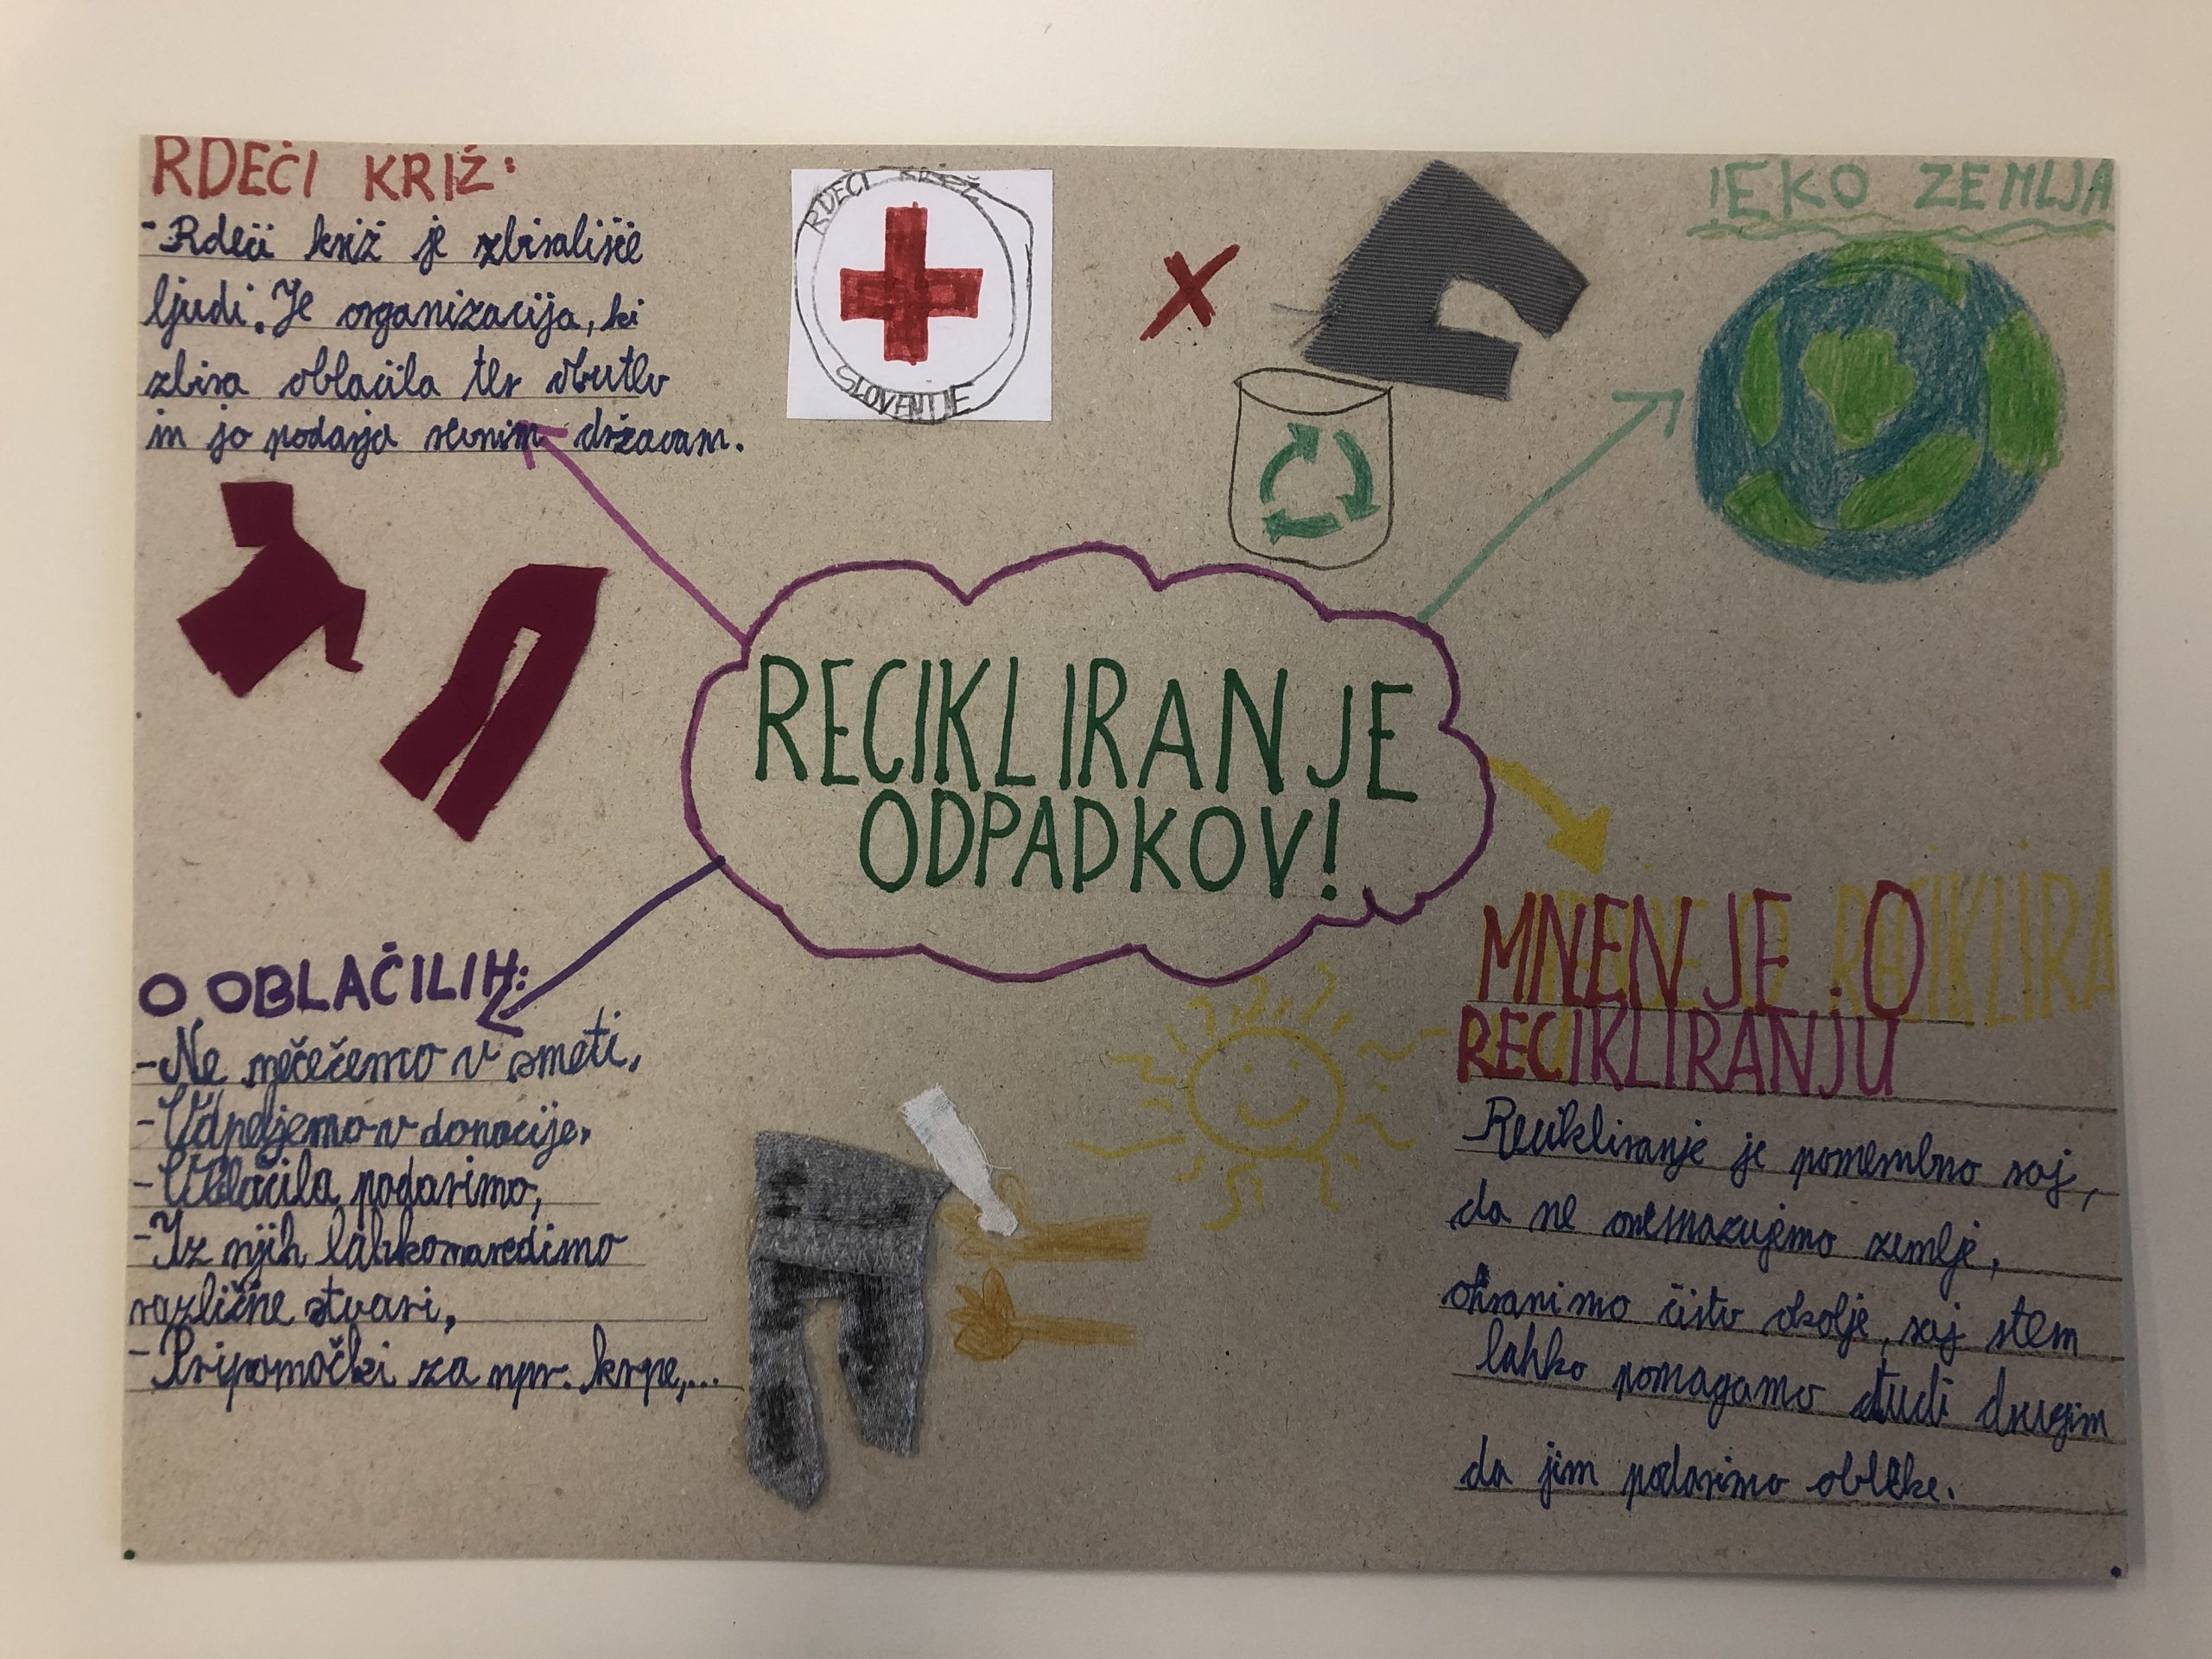 RDEČI KRIŽ:
- Rdeči križ je zbirališče
ljudi. Je organizacija, ki
zbira oblačila ter obutev
in jo podarja revnim državam.
RDEČI KRIŽ
SLOVENIJE
!EKO ZEMLJA
RECIKLIRANJE
ODPADKOV!
O OBLAČILIH:
- Ne mečečemo v smeti,
- Odpeljemo v donacije,
- Oblačila podarimo,
- Iz njih lahko naredimo
različne stvari,
- Pripomočki za npr. krpe,...
MNENJE O
RECIKLIRANJU
Recikliranje je pomembno saj,
da ne onesnazujemo zemlje,
ohranimo čisto okolje, saj stem
lahko pomagamo tudi drugim
da jim podarimo obleke.